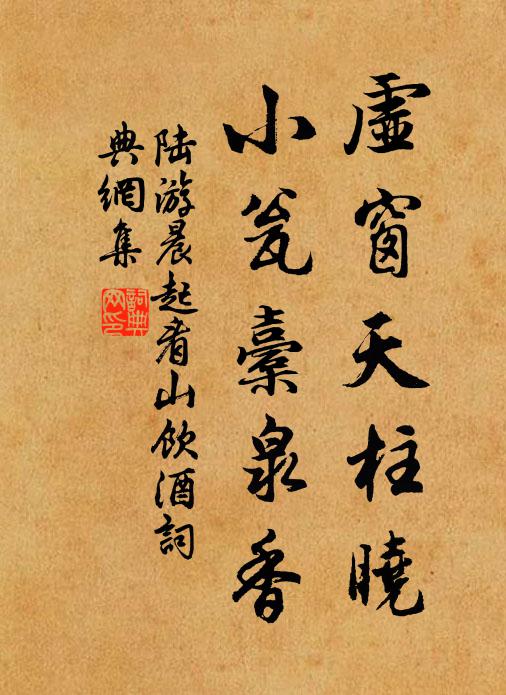 虛窗天柱曉
小瓮橐泉香
陆游晨起看山饮酒詞
典網集
詞典网印